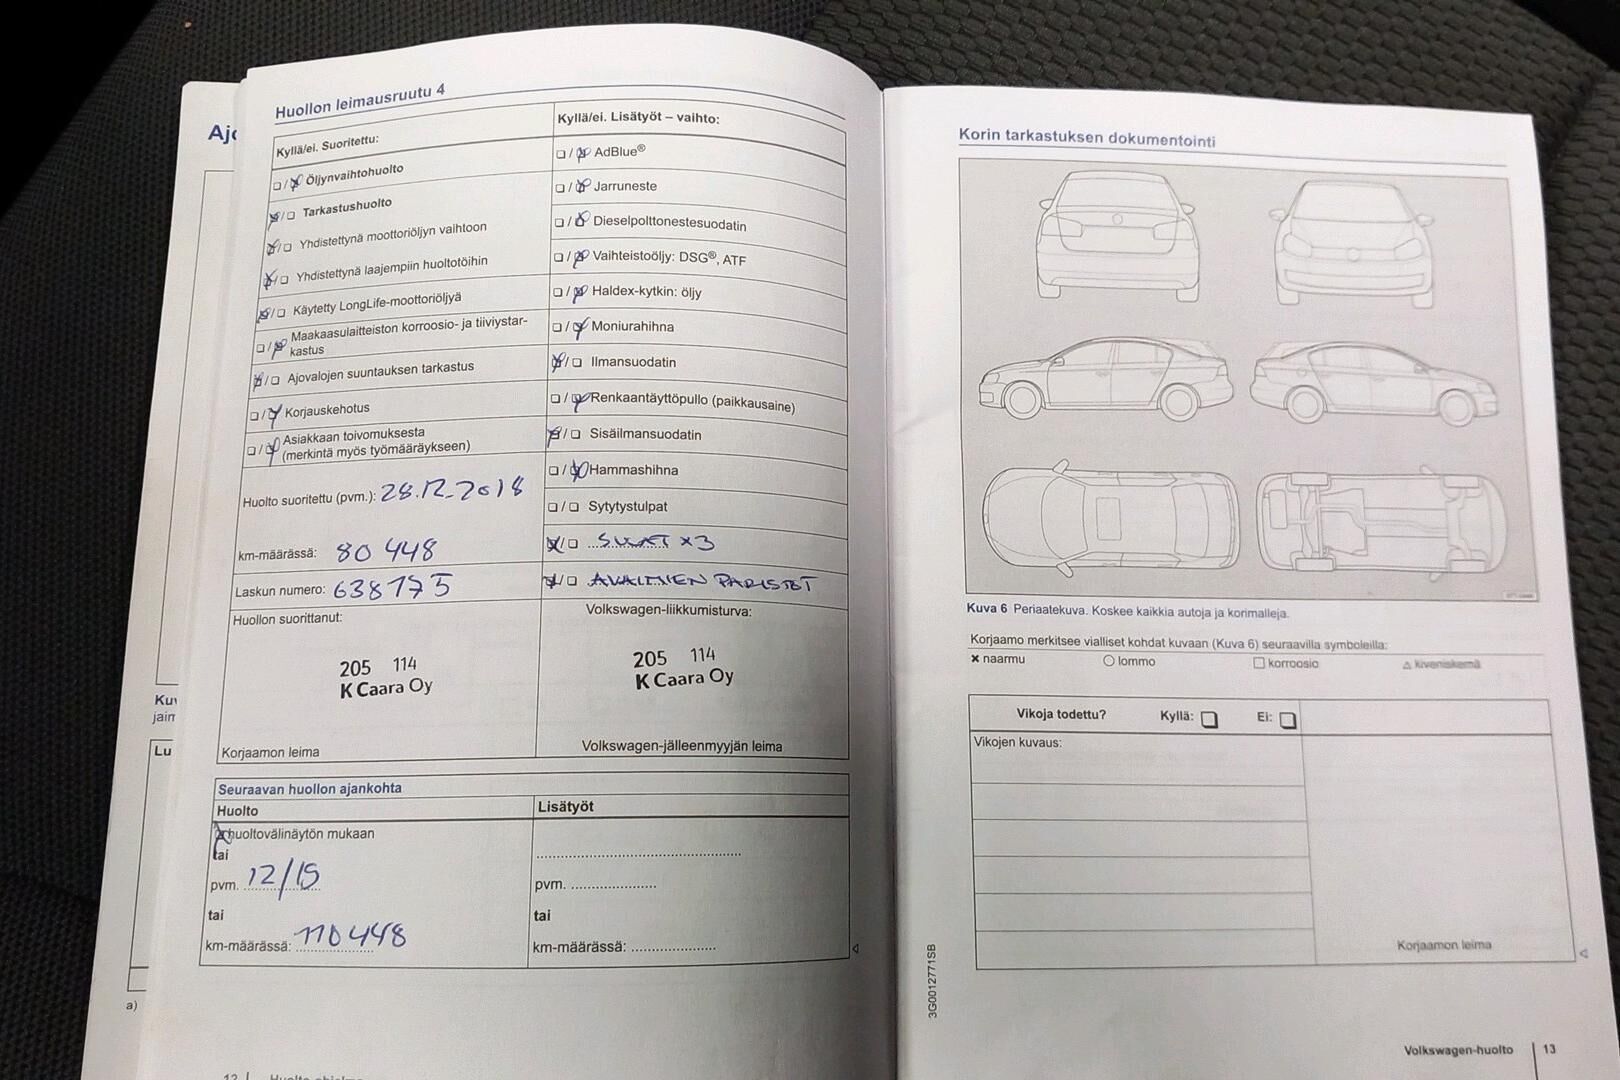 Huollon leimausruutu 4
Kyllä/ei. Suoritettu:
☐/☒ Öljynvaihtohuolto
☒/☐ Tarkastushuolto
☒/☐ Yhdistettynä moottoriöljyn vaihtoon
☒/☐ Yhdistettynä laajempiin huoltotöihin
☒/☐ Käytetty LongLife-moottoriöljyä
☐/☒ Maakaasulaitteiston korroosio- ja tiiviystar-
kastus
☒/☐ Ajovalojen suuntauksen tarkastus
☐/☒ Korjauskehotus
☐/☒ Asiakkaan toivomuksesta
(merkintä myös työmääräykseen)
Huolto suoritettu (pvm.): 28.12.2018
km-määrässä: 80 448
Laskun numero: 638175
Huollon suorittanut:
205 114
K Caara Oy
Korjaamon leima
Kyllä/ei. Lisätyöt – vaihto:
☐/☒ AdBlue®
☐/☒ Jarruneste
☐/☒ Dieselpolttonestesuodatin
☐/☒ Vaihteistoöljy: DSG®, ATF
☐/☒ Haldex-kytkin: öljy
☐/☒ Moniurahihna
☒/☐ Ilmansuodatin
☐/☒ Renkaantäyttöpullo (paikkausaine)
☒/☐ Sisäilmansuodatin
☐/☒ Hammashihna
☐/☐ Sytytystulpat
☒/☐ SULAT x3
☒/☐ AVAIMIEN PARISTOT
Volkswagen-liikkumisturva:
205 114
K Caara Oy
Volkswagen-jälleenmyyjän leima
Seuraavan huollon ajankohta
Huolto
☒ huoltovälinäytön mukaan
tai
pvm. 12/19
tai
km-määrässä: 110448
Lisätyöt
pvm.
tai
km-määrässä:
12
Ajo
Kuv
jaim
Lu
a)
Korin tarkastuksen dokumentointi
Kuva 6 Periaatekuva. Koskee kaikkia autoja ja korimalleja.
Korjaamo merkitsee vialliset kohdat kuvaan (Kuva 6) seuraavilla symboleilla:
× naarmu ○ lommo ☐ korroosio △ kiveniskemä
Vikoja todettu? Kyllä: ☐ Ei: ☐
Vikojen kuvaus:
Korjaamon leima
3G0012771SB
Volkswagen-huolto 13